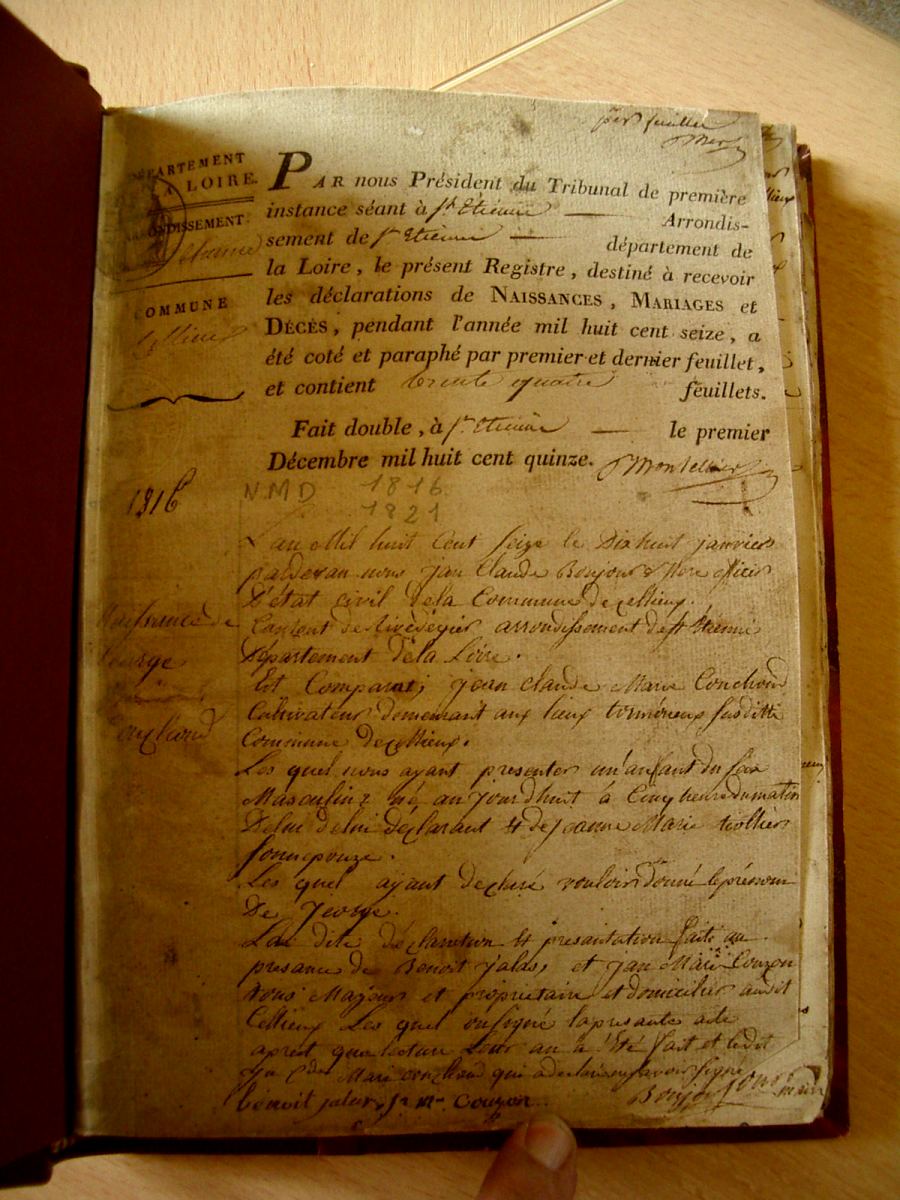 per feuillet
DÉPARTEMENT
LA LOIRE.
ARRONDISSEMENT
Etienne
COMMUNE
Cellieux
PAR nous Président du Tribunal de première
instance séant à St. Etienne — Arrondis-
sement de St. Etienne — département de
la Loire, le présent Registre, destiné à recevoir
les déclarations de NAISSANCES, MARIAGES et
DÉCÈS, pendant l'année mil huit cent seize, a
été coté et paraphé par premier et dernier feuillet,
et contient trente quatre feuillets.
Fait double, à St. Etienne — le premier
Décembre mil huit cent quinze. Montellier
1816
N.M D 1816
1821
L'an Mil huit Cent seize le Dix huit janvier
pardevan nous jan Claude Bonjour Mere officier
D'état civil dela Commune de Cellieux.
Canton de Rivedegier arrondissement de St Etienne
Département dela Loire.
Naissance de
George
Conchond
Est Comparu; jean claude Marie Conchond
Cultivateur demeurant aux lieux susditte
Commune de Cellieux.
Les quel nous ayant presenter un anfant du sex
Masculin né, au jourdhuit à Cinq heure du matin
De lui déclarant et de jeanne Marie
son epouze.
Les quel ayant declaré vouloir donné le prénom
De george.
La dite déclaration et presantation faite au
presance de Benoit jalas, et jan Marie Couzon
tous Majeur et propriétaire et domicilier audit
Cellieux Les quel on signé la presante acte
aprest que lecture Leur an à été fait et ledit
jn Cde Marie conchond qui a declaré ne savoir signé
benoit jalas jn m Couzon Bonjour